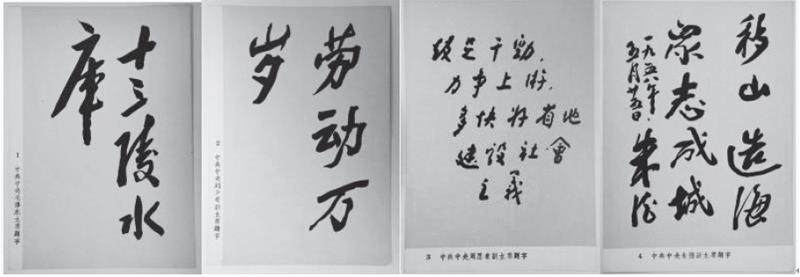 十三陵水
库
1 中共中央毛澤东主席題字
劳动万
岁
2 中共中央刘少奇副主席題字
鼓足干勁，
力争上游，
多快好省地
建設社會
主義
3 中共中央周恩來副主席題字
移山造海
眾志成城
一九五八年
五月廿五日
朱德
4 中共中央朱德副主席題字